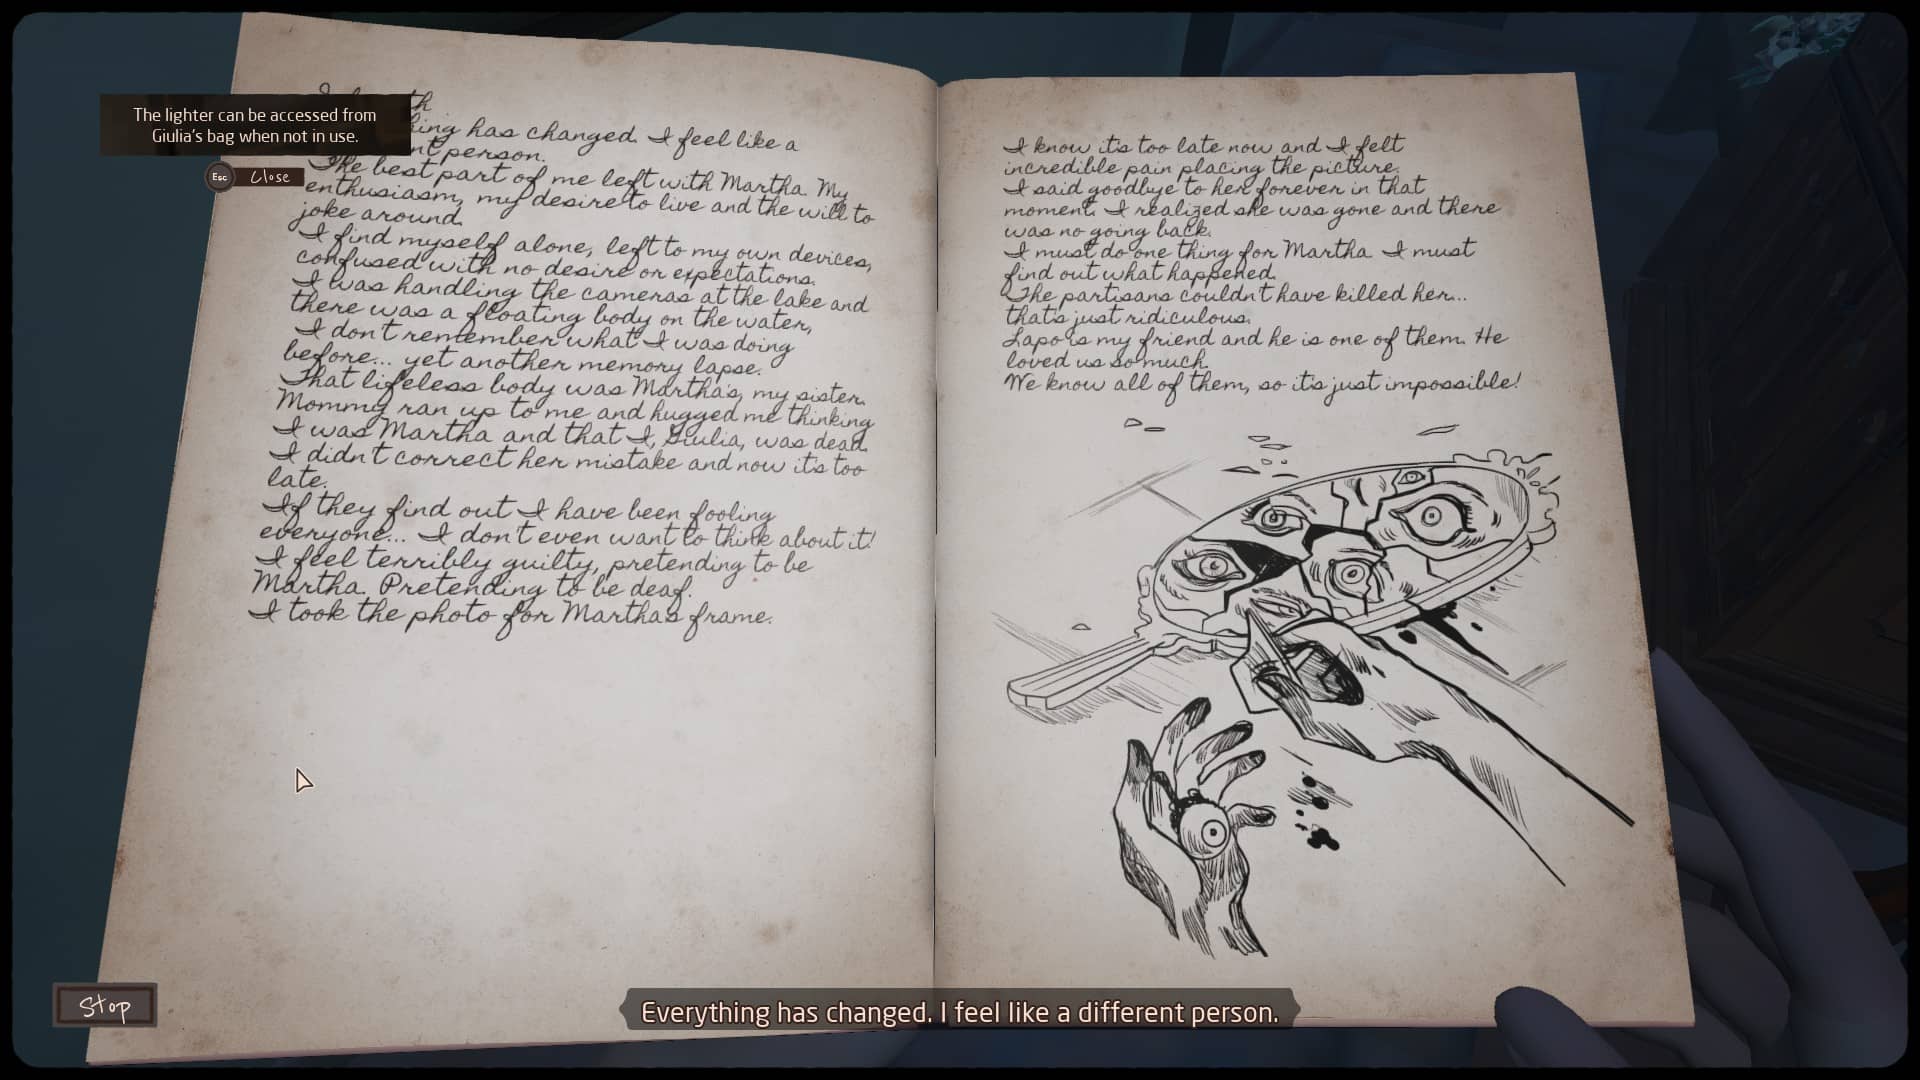 The lighter can be accessed from
Giulia's bag when not in use.
Esc Close
hing has changed. I feel like a
nt person.
The best part of me left with Martha. My
enthusiasm, my desire to live and the will to
joke around.
I find myself alone, left to my own devices,
confused with no desire or expectations.
I was handling the cameras at the lake and
there was a floating body on the water,
I don't remember what I was doing
before... yet another memory lapse.
That lifeless body was Martha's, my sister.
Mommy ran up to me and hugged me thinking
I was Martha and that I, Giulia, was dead.
I didn't correct her mistake and now it's too
late.
If they find out I have been fooling
everyone... I don't even want to think about it!
I feel terribly guilty, pretending to be
Martha. Pretending to be deaf.
I took the photo for Martha's frame.
I know it's too late now and I felt
incredible pain placing the picture.
I said goodbye to her forever in that
moment. I realized she was gone and there
was no going back.
I must do one thing for Martha. I must
find out what happened.
The partisans couldn't have killed her...
that's just ridiculous.
Lapo is my friend and he is one of them. He
loved us so much.
We know all of them, so it's just impossible!
Stop
Everything has changed. I feel like a different person.